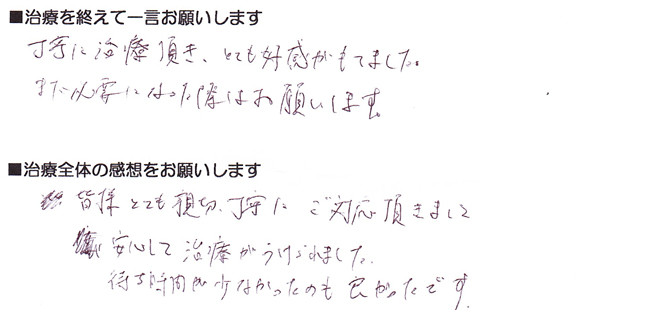 ■治療を終えて一言お願いします
丁寧に治療頂き、とても好感がもてました。
また必要になった際はお願いします。
■治療全体の感想をお願いします
皆様とても親切、丁寧にご対応頂きまして
安心して治療がうけられました。
待ち時間が少なかったのも良かったです。